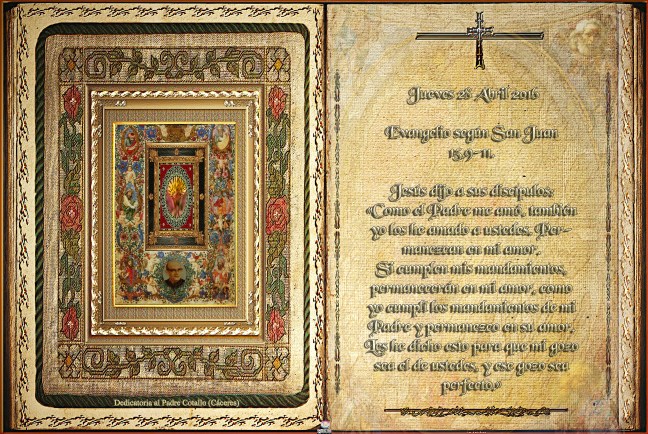 Dedicatoria al Padre Cotallo (Cáceres)
Jueves 28 Abril 2016
Evangelio según San Juan
15,9-11.
Jesús dijo a sus discípulos:
«Como el Padre me amó, también
yo los he amado a ustedes. Per-
manezcan en mi amor.
Si cumplen mis mandamientos,
permanecerán en mi amor, como
yo cumplí los mandamientos de mi
Padre y permanezco en su amor.
Les he dicho esto para que mi gozo
sea el de ustedes, y ese gozo sea
perfecto.»